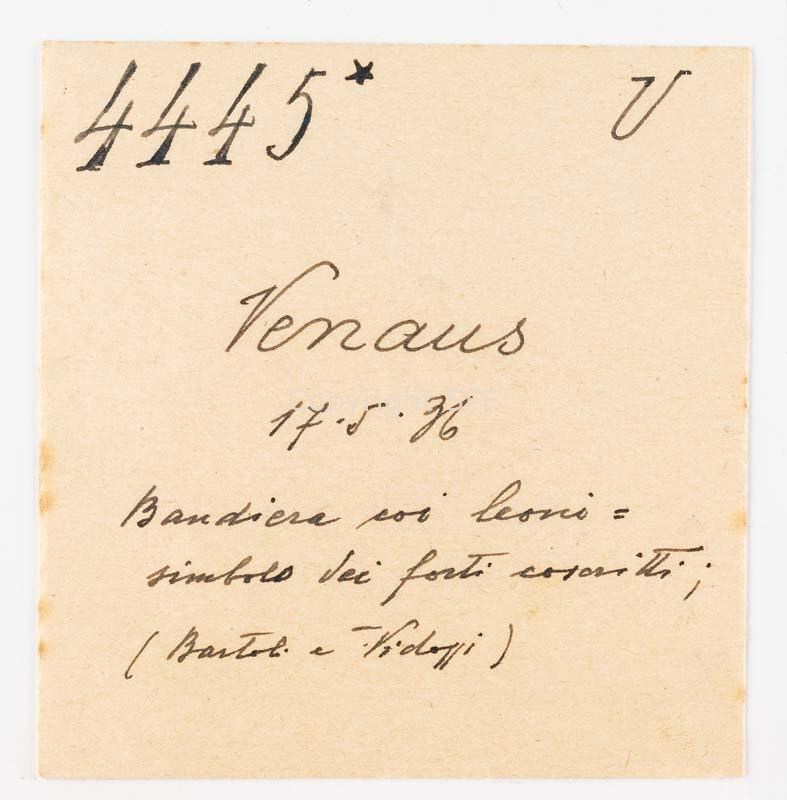 4445* V
Venaus
17.5.36
Bandiera coi leoni =
simbolo dei forti coscritti;
(Bartoli e Vidossi)